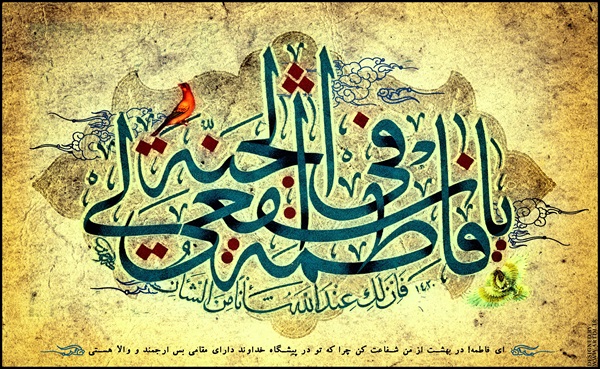 یا فاطمة اشفعی لی فی الجنة
فان لك عند الله شأنا من الشأن
۱۴۲۰
ای فاطمه! در بهشت از من شفاعت کن چرا که تو در پیشگاه خداوند دارای مقامی بس ارجمند و والا هستی